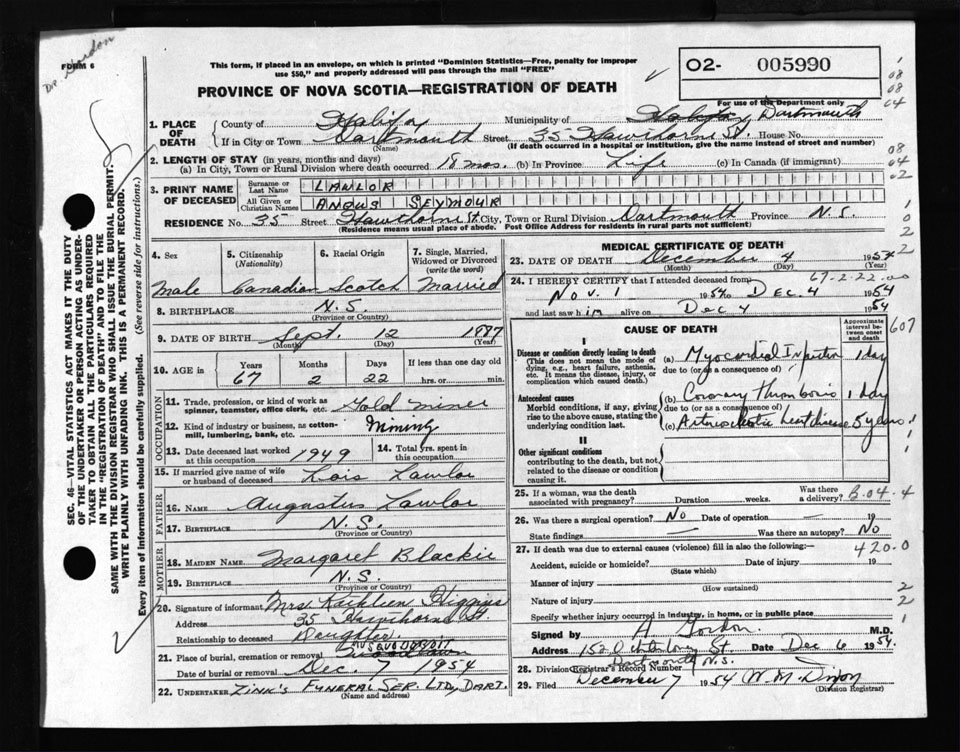 FORM 6
Dr. Gordon
This form, if placed in an envelope, on which is printed "Dominion Statistics—Free, penalty for improper
use $50," and properly addressed will pass through the mail "FREE"
O2- 005990
PROVINCE OF NOVA SCOTIA—REGISTRATION OF DEATH
For use of the Department only
1. PLACE OF DEATH
County of Halifax Municipality of Halifax, Dartmouth
If in City or Town Dartmouth Street 35 Hawthorne St. House No.
(Name) (If death occurred in a hospital or institution, give the name instead of street and number)
2. LENGTH OF STAY (in years, months and days)
(a) In City, Town or Rural Division where death occurred 18 mos. (b) In Province Life (c) In Canada (if immigrant)
3. PRINT NAME OF DECEASED
Surname or Last Name LAWLOR
All Given or Christian Names ANGUS SEYMOUR
RESIDENCE No. 35 Street Hawthorne St. City, Town or Rural Division Dartmouth Province N.S.
(Residence means usual place of abode. Post Office Address for residents in rural parts not sufficient)
4. Sex
Male
5. Citizenship (Nationality)
Canadian
6. Racial Origin
Scotch
7. Single, Married, Widowed or Divorced (write the word)
Married
8. BIRTHPLACE N.S.
(Province or Country)
9. DATE OF BIRTH Sept. 12 1887
(Month) (Day) (Year)
10. AGE in Years Months Days If less than one day old
67 2 22 hrs. or min.
OCCUPATION
11. Trade, profession, or kind of work as spinner, teamster, office clerk, etc. Gold Miner
12. Kind of industry or business, as cotton-mill, lumbering, bank, etc. Mining
13. Date deceased last worked at this occupation 1949
14. Total yrs. spent in this occupation
15. If married give name of wife or husband of deceased Lois Lawlor
FATHER
16. NAME Augustus Lawlor
17. BIRTHPLACE N.S.
(Province or Country)
MOTHER
18. MAIDEN NAME Margaret Blackie
19. BIRTHPLACE N.S.
(Province or Country)
20. Signature of informant Mrs. Kathleen Higgins
Address 35 Hawthorne St.
Relationship to deceased Daughter
21. Place of burial, cremation or removal MUSQUODOBOIT
Date of burial or removal Dec. 7 1954
22. UNDERTAKER ZINK'S FUNERAL SER. LTD, DART.
(Name and address)
MEDICAL CERTIFICATE OF DEATH
23. DATE OF DEATH December 4 1954
(Month) (Day) (Year)
67-2-22
24. I HEREBY CERTIFY that I attended deceased from
Nov. 1 1954 to Dec 4 1954
and last saw him alive on Dec 4 1954
CAUSE OF DEATH
Approximate interval between onset and death
I
Disease or condition directly leading to death
(This does not mean the mode of dying, e.g., heart failure, asthenia, etc. It means the disease, injury, or complication which caused death.)
(a) Myocardial Infarction 1 day
due to (or as a consequence of)
Antecedent causes
Morbid conditions, if any, giving rise to the above cause, stating the underlying condition last.
(b) Coronary Thrombosis 1 day
due to (or as a consequence of)
(c) Arteriosclerotic heart disease 5 years
II
Other significant conditions
contributing to the death, but not related to the disease or condition causing it.
25. If a woman, was the death associated with pregnancy? Duration weeks. Was there a delivery?
B-04-4
26. Was there a surgical operation? No Date of operation — 19
State findings — Was there an autopsy? No
27. If death was due to external causes (violence) fill in also the following:—
420.0
Accident, suicide or homicide? Date of injury 19
(State which)
Manner of injury
(How sustained)
Nature of injury
Specify whether injury occurred in industry, in home, or in public place
Signed by A Gordon M.D.
Address St. Date Dec 6 1954
Dartmouth N.S.
28. Division Registrar's Record Number
29. Filed December 7 1954 W. M. Dixon
(Division Registrar)
607
SEC. 46—VITAL STATISTICS ACT MAKES IT THE DUTY
OF THE UNDERTAKER OR PERSON ACTING AS UNDERTAKER TO OBTAIN ALL THE PARTICULARS REQUIRED
IN THE "REGISTRATION OF DEATH" AND TO FILE THE
SAME WITH THE DIVISION REGISTRAR WHO SHALL ISSUE THE BURIAL PERMIT.
WRITE PLAINLY WITH UNFADING INK. THIS IS A PERMANENT RECORD.
Every item of information should be carefully supplied. (See reverse side for instructions.)